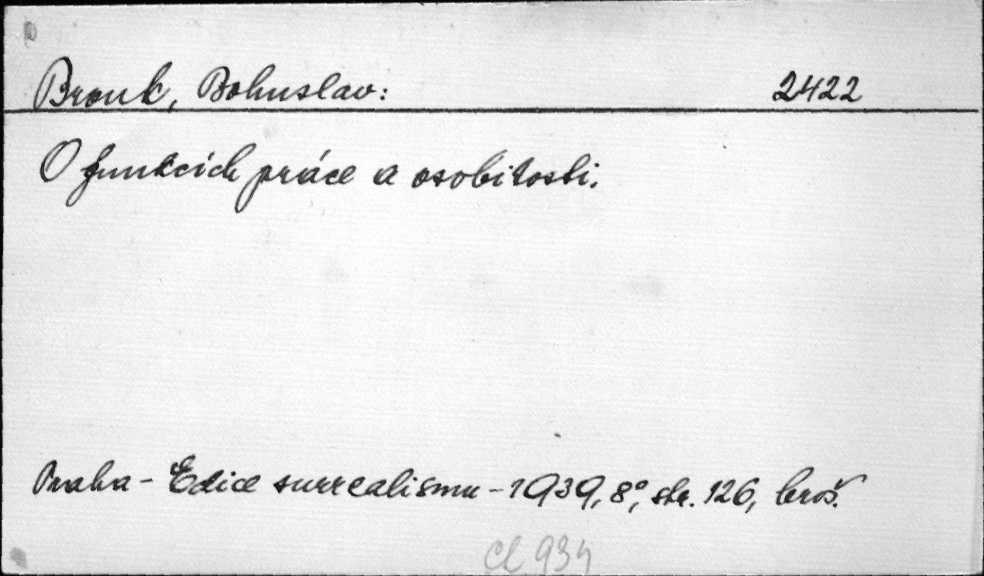 Brouk, Bohuslav: 2422
O funkcích práce a osobitosti.
Praha - Edice surrealismu - 1939, 8°, str. 126, brož.
Cl 934